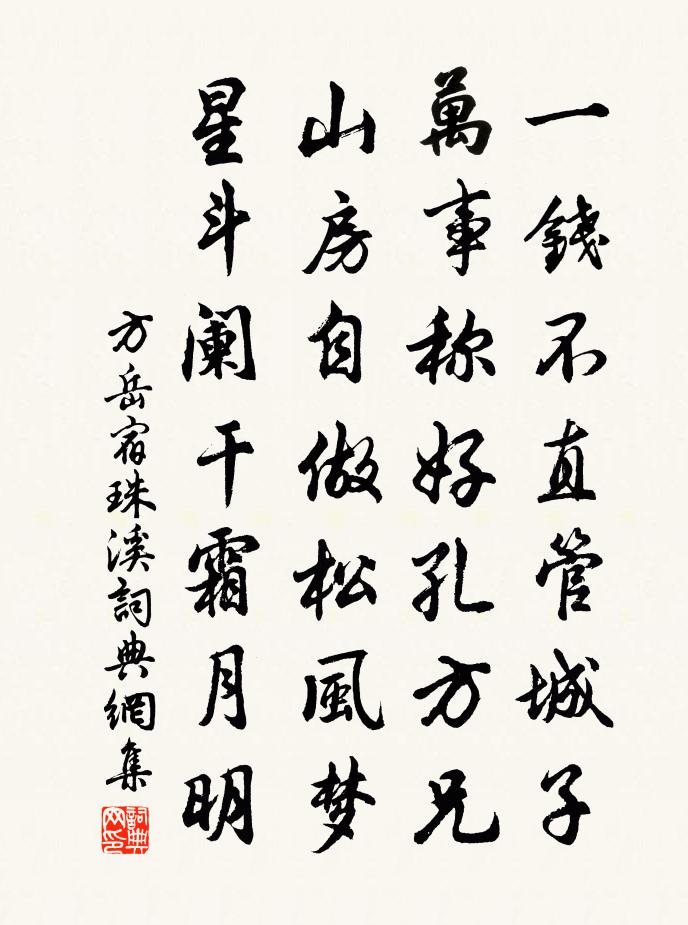 一錢不直管城子
萬事称好孔方兄
山房自做松風梦
星斗阑干霜月明
方岳宿珠溪詞典網集
詞典网印